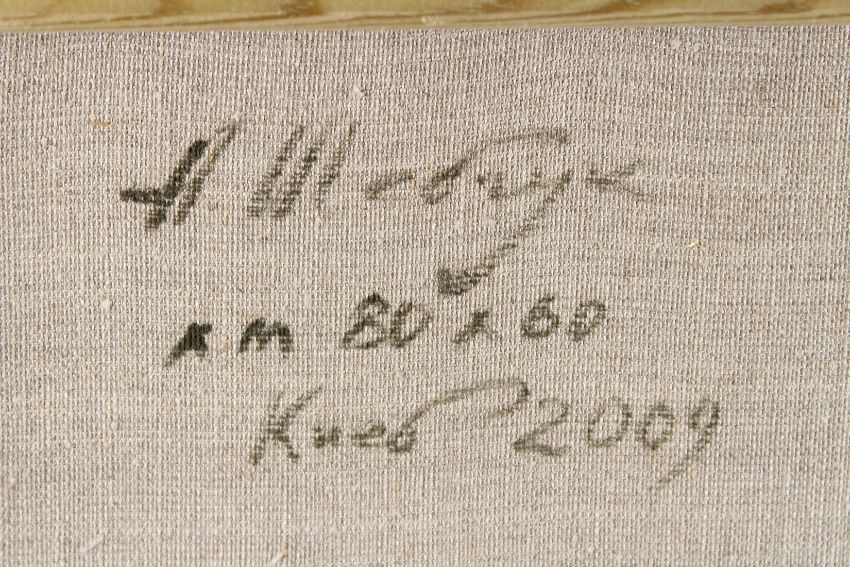 А Шевчук
х м 80 х 60
Киев 2009